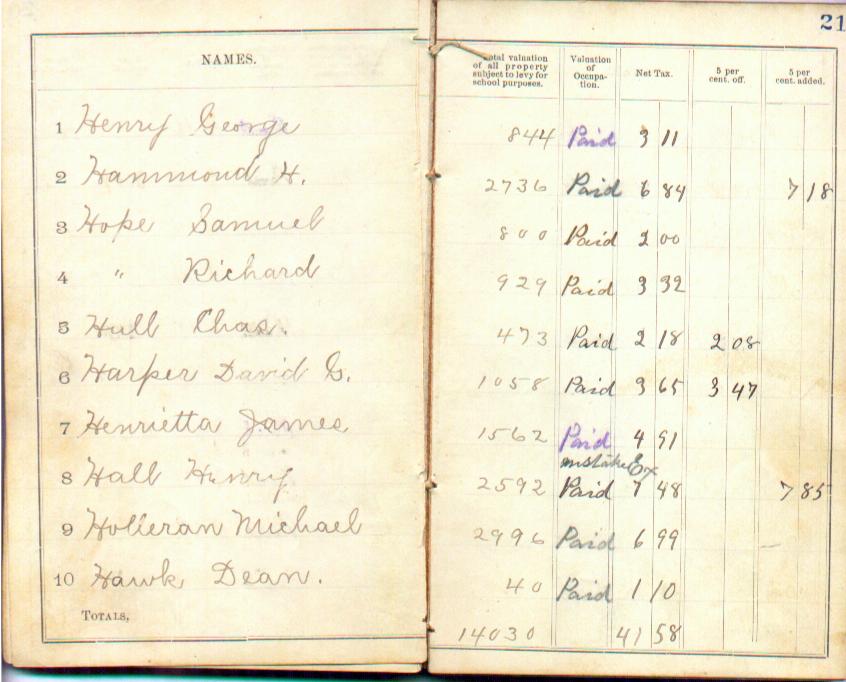 21
NAMES. Total valuation of all property subject to levy for school purposes. Valuation of Occupa-tion. Net Tax. 5 per cent. off. 5 per cent. added.
1 Henry George 844 Paid 3 11
2 Hammond H. 2736 Paid 6 84 7 18
3 Hope Samuel 800 Paid 2 00
4 " Richard 929 Paid 3 32
5 Hull Chas. 473 Paid 2 18 2 08
6 Harper David G. 1058 Paid 3 65 3 47
7 Henrietta James 1562 Paid 4 91
mistake
8 Hall Henry 2592 Paid 7 48 7 85
9 Holleran Michael 2996 Paid 6 99
10 Hawk Dean. 40 Paid 1 10
TOTALS, 14030 41 58